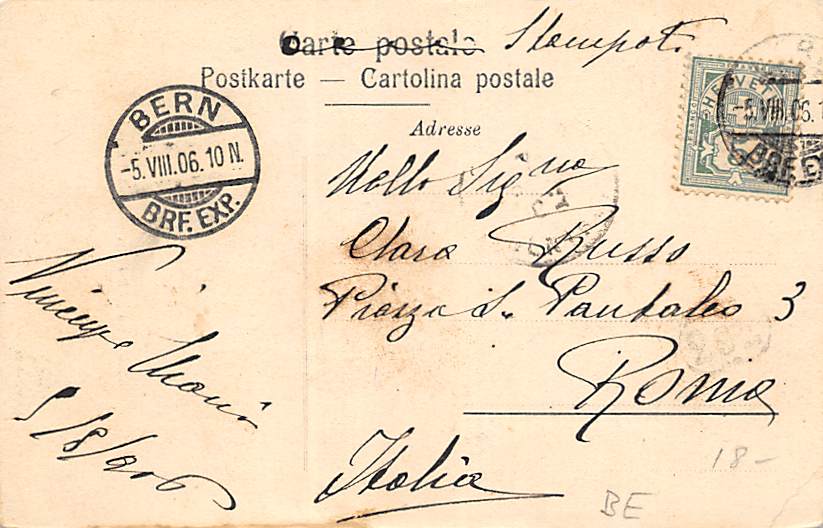 Carte postale Stampate
Postkarte — Cartolina postale
Adresse
BERN
-5.VIII.06.10 N.
BRF. EXP.
HELVETIA
FRANCO
-5.VIII.06.1
BRF. EX
Sig.na
Clara Russo
Piazza S. Pantaleo 3
Roma
Italia
Vincenzo
5/8/906
18-
BE